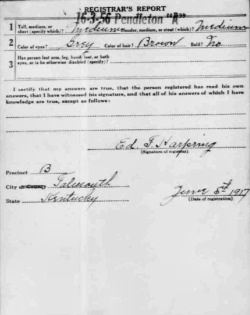 REGISTRAR'S REPORT
16-3-56 Pendleton "A"
1 Tall, medium, or short (specify which)? Medium Slender, medium, or stout (which)? Medium
2 Color of eyes? Grey Color of hair? Brown Bald? No
3 Has person lost arm, leg, hand, foot, or both eyes, or is he otherwise disabled (specify)?
I certify that my answers are true, that the person registered has read his own answers, that I have witnessed his signature, and that all of his answers of which I have knowledge are true, except as follows:
Ed. T. Harpring
(Signature of registrar)
Precinct B
City Falmouth
State Kentucky
June 5th 1917
(Date of registration)